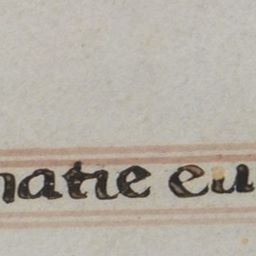 natie eu